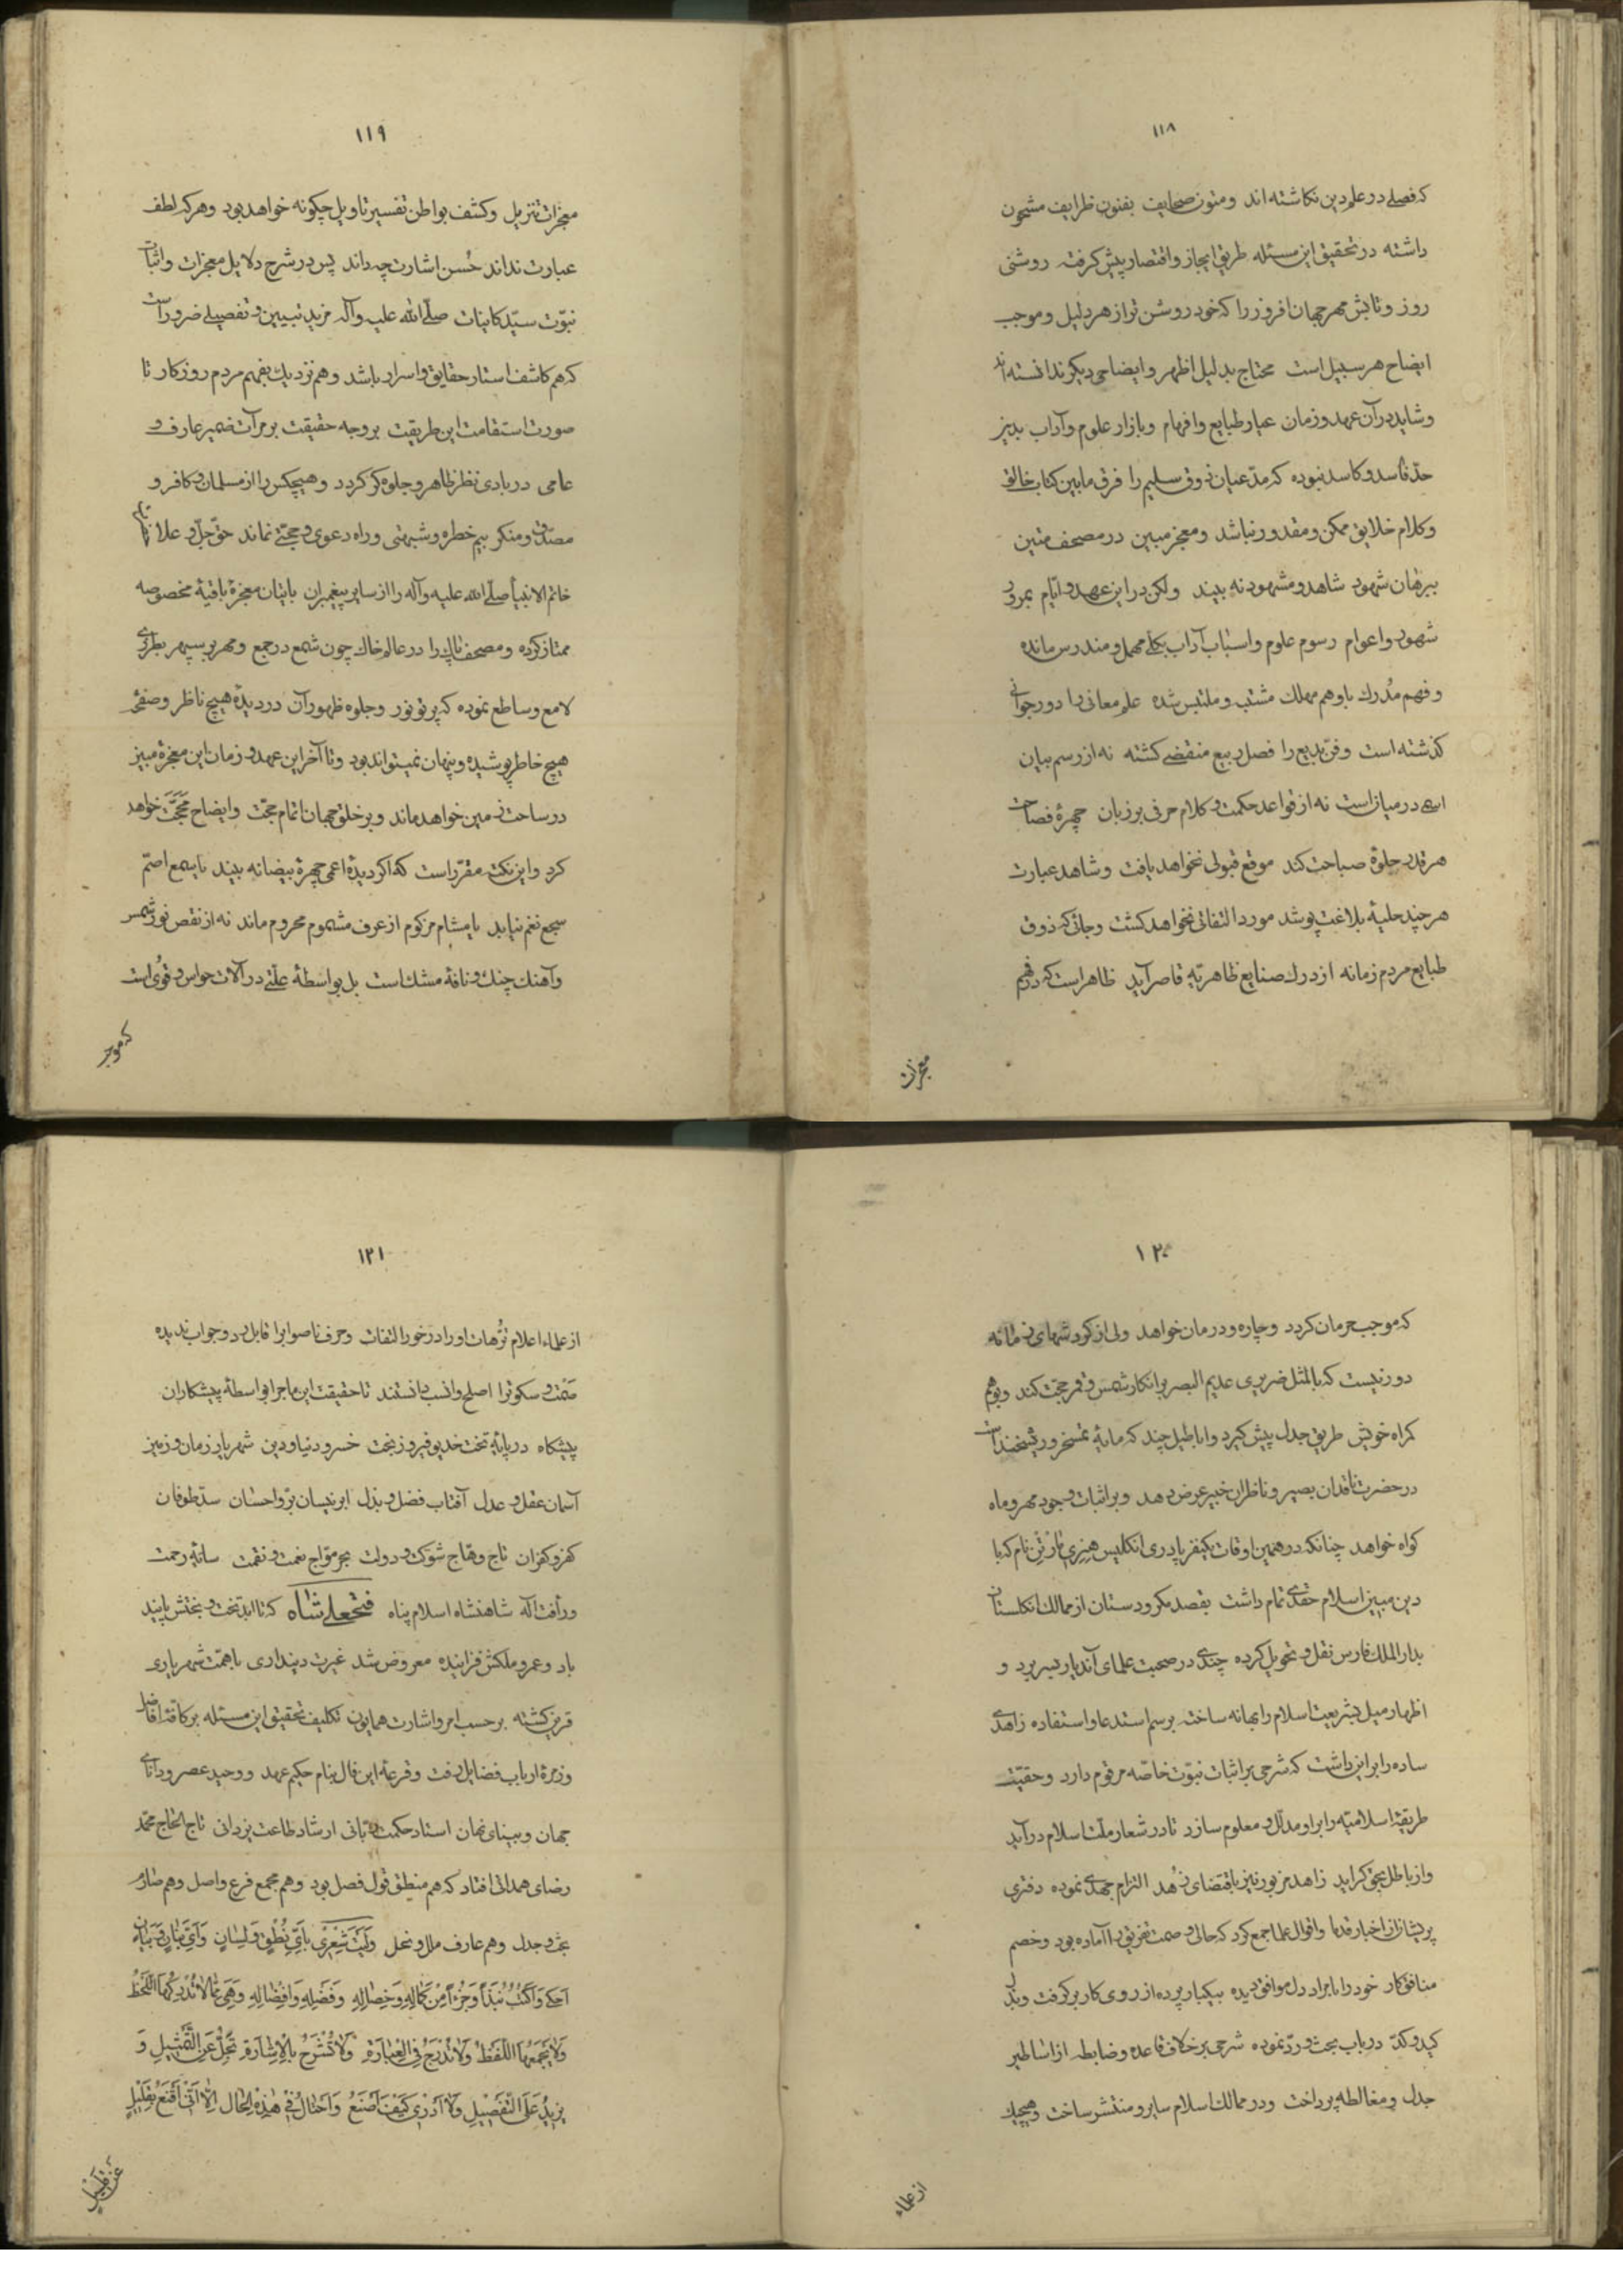 ۱۱۸
که فصلی در علم دین نکاشته اند ومتون صحایف بفنون ظرایف مشحون
داشته در تحقیق این مسئله طریق ایجاز واقتصار پیش کرفته روشنی
روز وتابش مهر جهان افروز را که خود روشن تر از هر دلیل وموجب
ایضاح هر سبیل است محتاج بدلیل اظهر وایضاحی دیکر ندانسته اند
وشاید در آن عهد وزمان عیار طبایع وافهام وبازار علوم وآداب بدین
حد فاسد وکاسد نبوده که مدعیان ذوق سلیم را فرق مابین کتاب خالق
وکلام خلایق ممکن ومقدور نباشد ومعجز مبین در مصحف متین
ببرهان شهود شاهد ومشهود نه بیند ولکن در این عهد وایّام بمرور
شهور واعوام رسوم علوم واسباب آداب بکلّی مهمل ومندرس مانده
وفهم مُدرك باوهم مهلك مشتبه وملتبس شده علم معانی را دور جوانی
کذشته است وفنّ بدیع را فصل ربیع منقضی کشته نه از رسم بیان
اسمی در میان است نه از قواعد حکمت وکلام حرفی بر زبان چهرۀ فصاحت
هر قدر جلوۀ صباحت کند موقع قبولی نخواهد یافت وشاهد عبارت
هر چند حلیۀ بلاغت پوشد مورد التفاتی نخواهد کشت وجائی که ذوق
طبایع مردم زمانه از درك صنایع ظاهریّه قاصر آید ظاهر است که در فهم
معجزات
۱۱۹
معجزات تنزیل وکشف بواطن تفسیر تاویل چکونه خواهد بود وهر که لطف
عبارت نداند حُسن اشارت چه داند پس در شرح دلایل معجزات واثبات
نبوّت سیّد کاینات صلّی الله علیه وآله مزید تبیین وتفصیلی ضرور است
که هم کاشف استار حقایق واسرار باشد وهم نزدیك بفهم مردم روزکار تا
صورت استقامت این طریقت بر وجه حقیقت بر مرآت ضمیر عارف و
عامی در بادی نظر ظاهر وجلوه کر کردد وهیچکس را از مسلمان وکافر و
مصدّق ومنکر بیم خطره وشبهتی وراه دعوی وحجّتی نماند حقّ جلّ وعلا
خاتم الانبیأ صلّی الله علیه وآله را از سایر پیغمبران باتیان معجزۀ باقیۀ مخصوصه
ممتاز کرده ومصحف پاك را در عالم خاك چون شمع در جمع ومهر بر سپهر بطرزی
لامع وساطع نموده که پرتو نور وجلوه ظهور آن در دیدۀ هیچ ناظر وصفحۀ
هیچ خاطر پوشیده وپنهان نمیتواند بود وتا آخر این عهد وزمان این معجزۀ مبین
در ساحت زمین خواهد ماند وبر خلق جهان اتمام حجّت وایضاح مَحَجَّت خواهد
کرد واین نکته مقرّر است که اکر دیدۀ اعمی چهرۀ بیضا نه بیند یا سمع اصمّ
سجع نغم نیابد یا مشام مزکوم از عرف مشموم محروم ماند نه از نقص نور شمس
وآهنك چنك ونافۀ مشك است بل بواسطۀ علّتی در آلات حواس وقوُی است
که موجب
۱۲۰
که موجب حرمان کردد وچاره ودرمان خواهد ولی از کردشهای زمانه
دور نیست که بالمثل ضریری عدیم البصر بر انکار شمس وقمر حجّت کند وبوهم
کمراه خویش طریق جدل پیش کیرد واباطیل چند که مایۀ تمسخر وریشخند است
در حضرت ناقدان بصیر وناظران خبیر عرض دهد وبر اثبات وجود مهر وماه
کواه خواهد چنانکه در همین اوقات یکنفر پادری انکلیس هِنِری مٰارْتِن نام که با
دین مبین اسلام حقدی تمام داشت بقصد مکر ودستان از ممالك انکلستان
بدار الملك فارس نقل وتحویل کرده چندی در صحبت علمای آندیار بسر برد و
اظهار میل بشریعت اسلام را بهانه ساخته برسم استدعا واستفاده زاهدی
ساده را بر این داشت که شرحی بر اثبات نبوّت خاصّه مرقوم دارد وحقیّت
طریقۀ اسلامیّه را بر او مدلّل ومعلوم سازد تا در شعار ملّت اسلام درآید
واز باطل بحق کراید زاهد مزبور نیز باقتضای زهد التزام جهدی نموده دفتری
پریشان از اخبار قدما واقوال علما جمع کرد که حالی وصمت تفریق را آماده بود وخصم
منافق کار خود را با مراد دل موافق دیده بیکبار پرده از روی کار برکرفت وبذل
کید وکدّ در باب بحث وردّ نموده شرحی بر خلاف قاعده وضابطه از اساطیر
جدل ومغالطه پرداخت ودر ممالك اسلام سایر ومنتشر ساخت وهیچیك
از علماء
۱۲۱
از علماء اعلام تُرّهات او را در خور التفات وحرف ناصواب را قابل رد وجواب ندیده
صَمْت وسکوت را اصلح وانسب دانستند تا حقیقت این ماجرا بواسطۀ پیشکاران
پیشکاه در پایۀ تخت خدیو فیروز بخت خسرو دنیا ودین شهریار زمان وزمین
آسمان عقل وعدل آفتاب فضل وبذل ابر نیسان برّ واحسان سدّ طوفان
کفر وکفران تاج وهّاج شوکت ودولت بحر موّاج نعمت ونقمت سایۀ رحمت
ورأفت اله شاهنشاه اسلام پناه فتحعلی شاه که تا ابد تخت وبختش پاینده
باد وعمر وملکش فزاینده معروض شد غیرت دینداری با همّت شهریاری
قرین کشته بر حسب امر واشارت همایون تکلیف تحقیق این مسئله بر کافۀ افاضل
وزمرۀ ارباب فضایل رفت وقرعۀ این فال بنام حکیم عهد ووحید عصر ودانای
جهان وبینای نهان استاد حکمت ربّانی ارشاد طاعت یزدانی تاج الحاج محمّد
رضای همدانی افتاد که هم منطیق قول فصل بود وهم مجمع فرع واصل وهم صارم
بحث وجدل وهم عارف ملل ونحل وَلَیْتَ شِعْرٖی بِاَیِّ نُطْقٍ وَلِسٰانٍ وَاَیِّ بَنٰانٍ وَبَیٰانٍ
اَحْکٖی وَاَکْتُبُ نُبَذاً وَجُزْءاً مِنْ کَمٰالِهِ وَخِصٰالِهِ وَفَضْلِهِ وَاَفْضٰالِهِ وَهِیَ مِمّٰا لاٰ تُدْرِکُهَا اللَّحْظُ
وَلاٰ یَجْمَعُهَا اللَّفْظُ وَلاٰ تُدْرَجُ فِی الْعِبٰارَةِ وَلاٰ تُشْرَحُ بِالْاِشٰارَةِ تَجِلُّ عَنِ التَّمْثٖیلِ وَ
یَزٖیدُ عَلَی التَّفْصٖیلِ وَلاٰ اَدْرٖی کَیْفَ اَصْنَعُ وَاَحْتٰالُ فٖی هٰذِهِ الْحٰال اِلّٰا اَنّٖی اَقْنَعُ بِقَلٖیلٍ